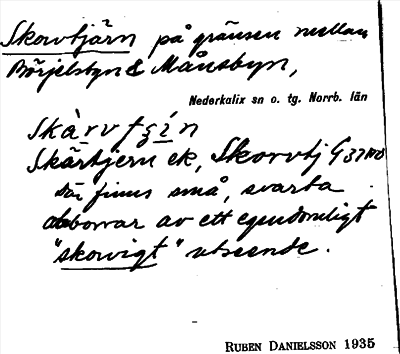 Skorvtjärn på gränsen mellan
Börjelsbyn & Månsbyn,
Nederkalix sn o. tg. Norrb. län
Skärtjern ek, Skorvtj
där finns små, svarta
aborrar av ett egendomligt
"skorvigt" utseende.
RUBEN DANIELSSON 1935